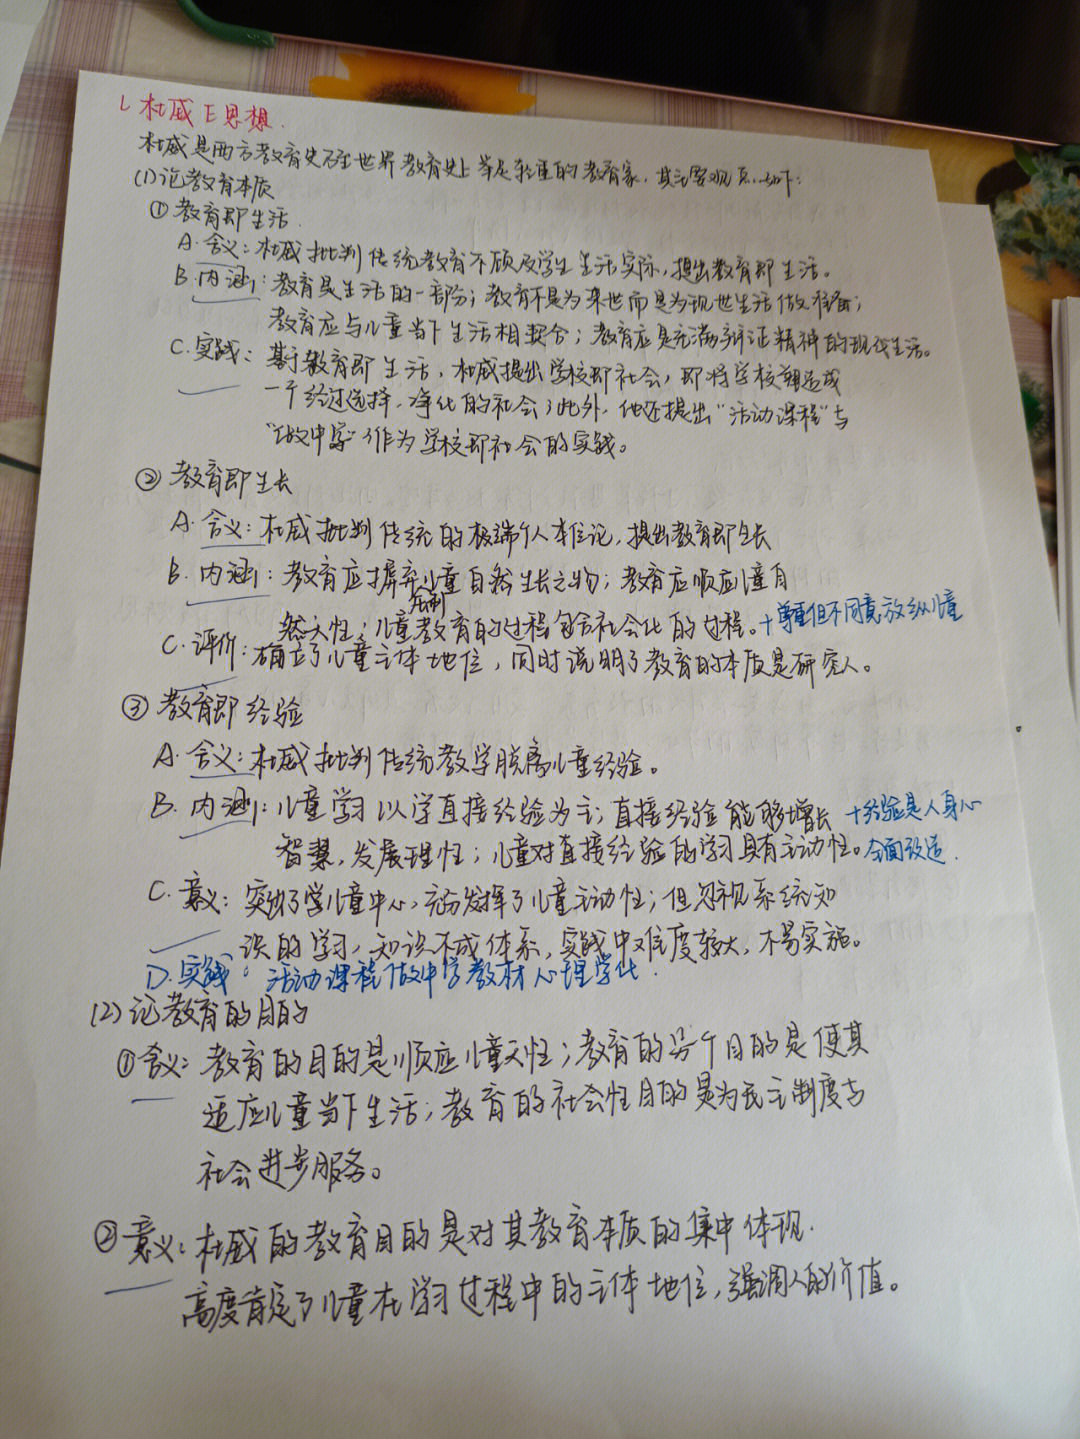 1. 杜威E思想.
杜威是西方教育史乃至世界教育史上举足轻重的教育家, 其主要观点如下:
(1)论教育本质
①教育即生活.
A. 含义: 杜威批判传统教育不顾及学生生活实际, 提出教育即生活。
B. 内涵: 教育是生活的一部分; 教育不是为来世而是为现世生活做准备;
教育应与儿童当下生活相契合; 教育应是充满辩证精神的现代生活。
C. 实践: 基于教育即生活, 杜威提出学校即社会, 即将学校塑造成
一个经过选择、净化的社会; 此外, 他还提出“活动课程”与
“做中学”作为学校即社会的实践。
②教育即生长
A. 含义: 杜威批判传统的极端个人本位论, 提出教育即生长
B. 内涵: 教育应摒弃儿童自然生长之物; 教育应顺应儿童自
然天性; 儿童教育的过程包含社会化的过程。+尊重但不同意放纵儿童
C. 评价: 确立了儿童主体地位, 同时说明了教育的本质是研究人。
③教育即经验
A. 含义: 杜威批判传统教学脱离儿童经验。
B. 内涵: 儿童学习以学直接经验为主; 直接经验能够增长 +经验是人身心
智慧, 发展理性; 儿童对直接经验的学习具有主动性。全面改造.
C. 意义: 突出了学儿童中心, 充分发挥了儿童主动性; 但忽视系统知
识的学习, 知识不成体系, 实践中难度较大, 不易实施。
D. 实践: 活动课程 做中学 教材心理学化.
(2)论教育的目的
①含义: 教育的目的是顺应儿童天性; 教育的另个目的是使其
适应儿童当下生活; 教育的社会性目的是为民主制度与
社会进步服务。
②意义: 杜威的教育目的是对其教育本质的集中体现.
高度肯定了儿童在学习过程中的主体地位, 强调人的价值。